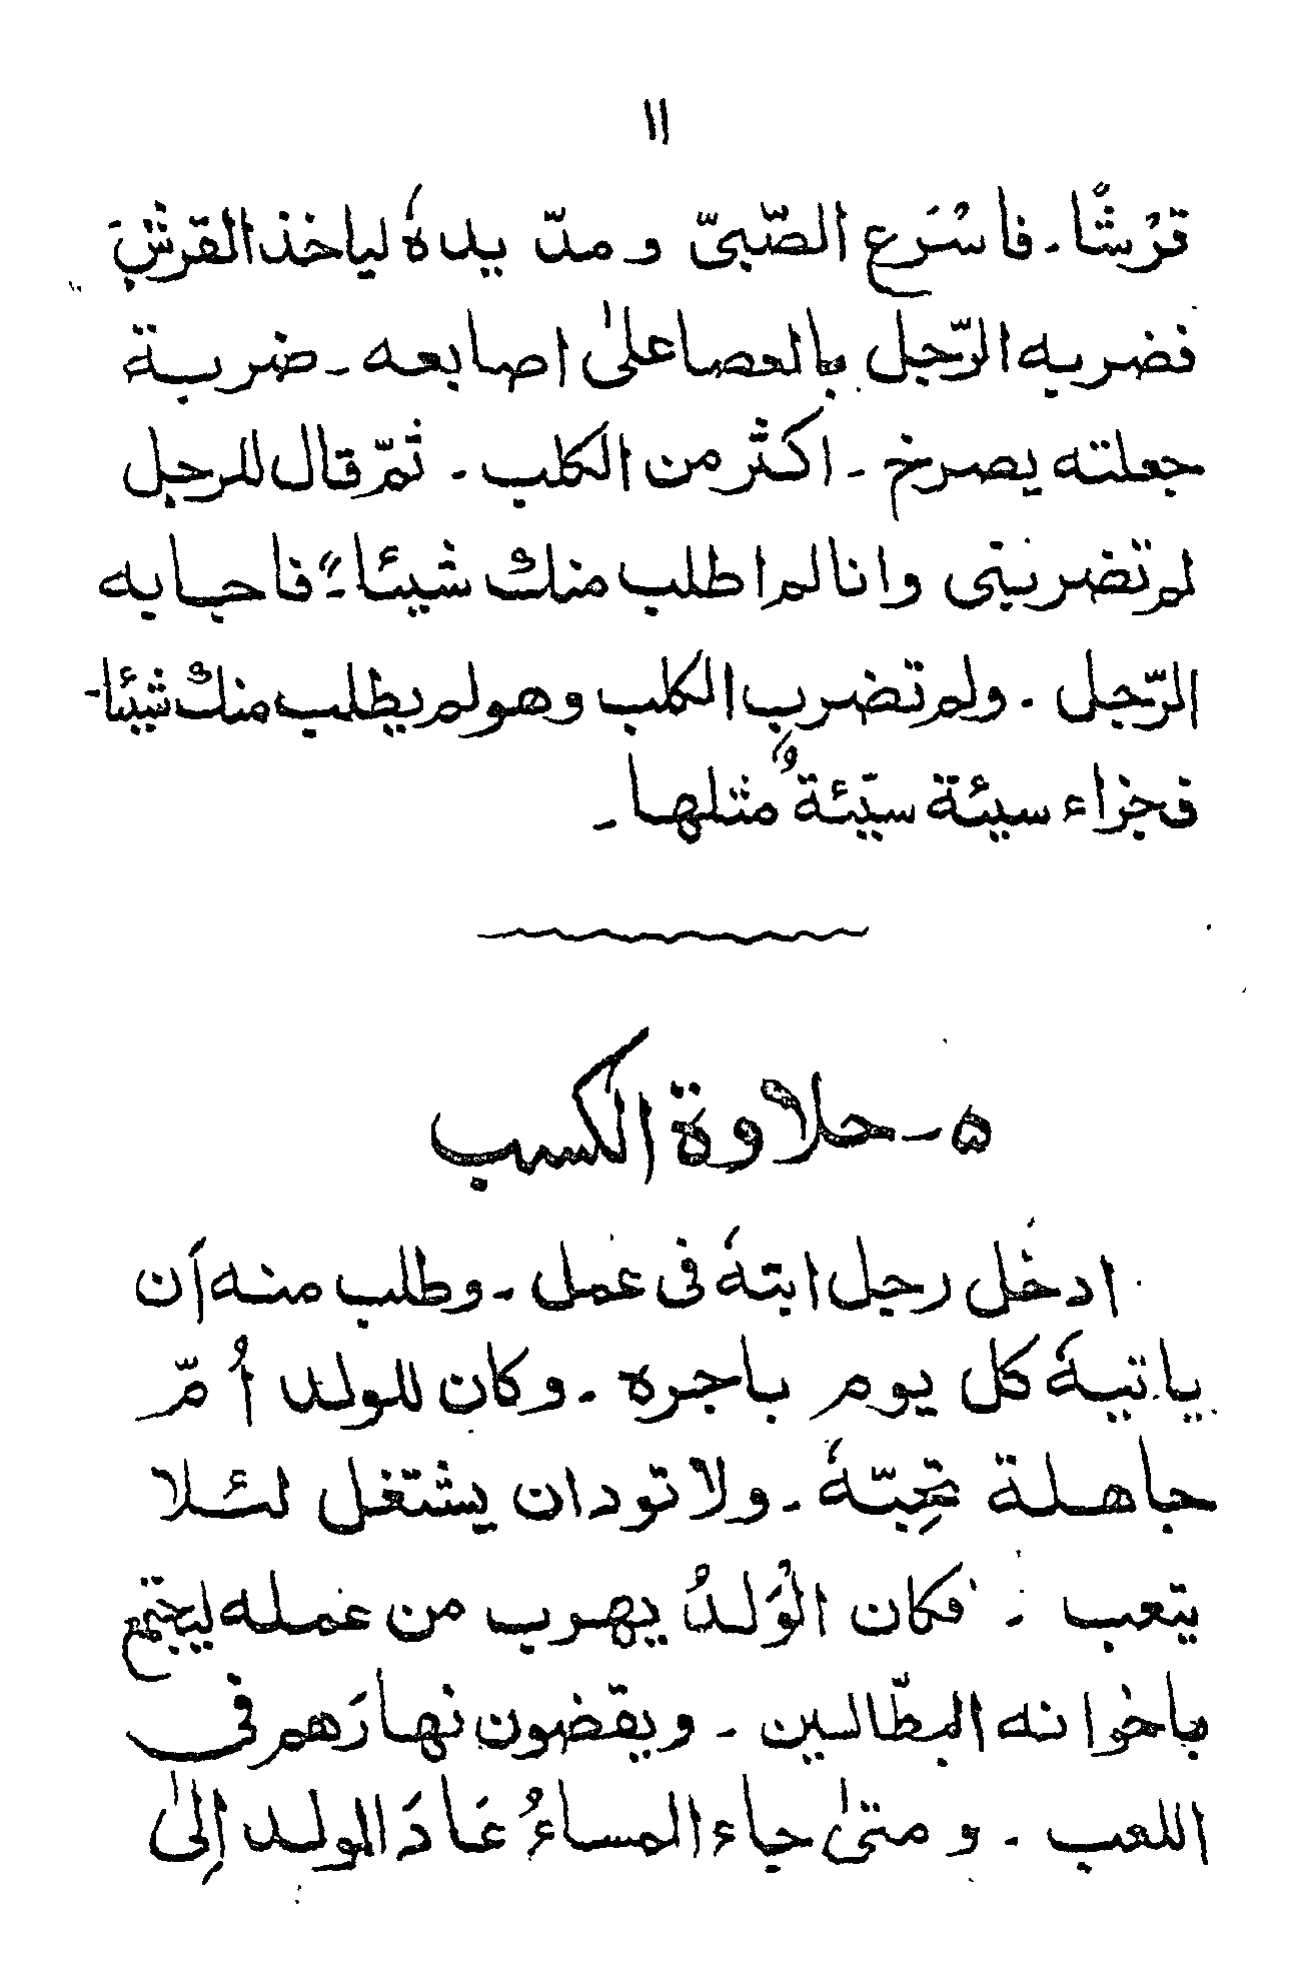 ١١
قرْشًا - فاسْرَع الصّبىّ و مدّ يده لياخذ القرشَ
فضربه الرّجل بالعصا علىٰ اصابعه - ضربة
جعلته يصرخ - اكثر من الكلب - ثمّ قال للرجل
لم تضربنى وانا لم اطلب منك شيئاً - فاجابه
الرّجل - ولم تضرب الكلب وهو لم يطلب منك شيئا -
فجزاء سيئة سيّئةٌ مثلها -
٥ - حلاوة الكسب
ادخل رجل ابنهٗ فى عمل - وطلب منه أن
ياتيهٗ كل يوم باجره - وكان للولد اُمّ
جاهلة تحِبّهٗ - ولا تود ان يشتغل لئلا
يتعب - فكان الْوَلدُ يهرب من عمله ليجتمع
باخوانه البطّالين - ويقضون نهارَهم فى
اللعب - و متىٰ جاء المساءُ عَادَ الولد اِلىٰ